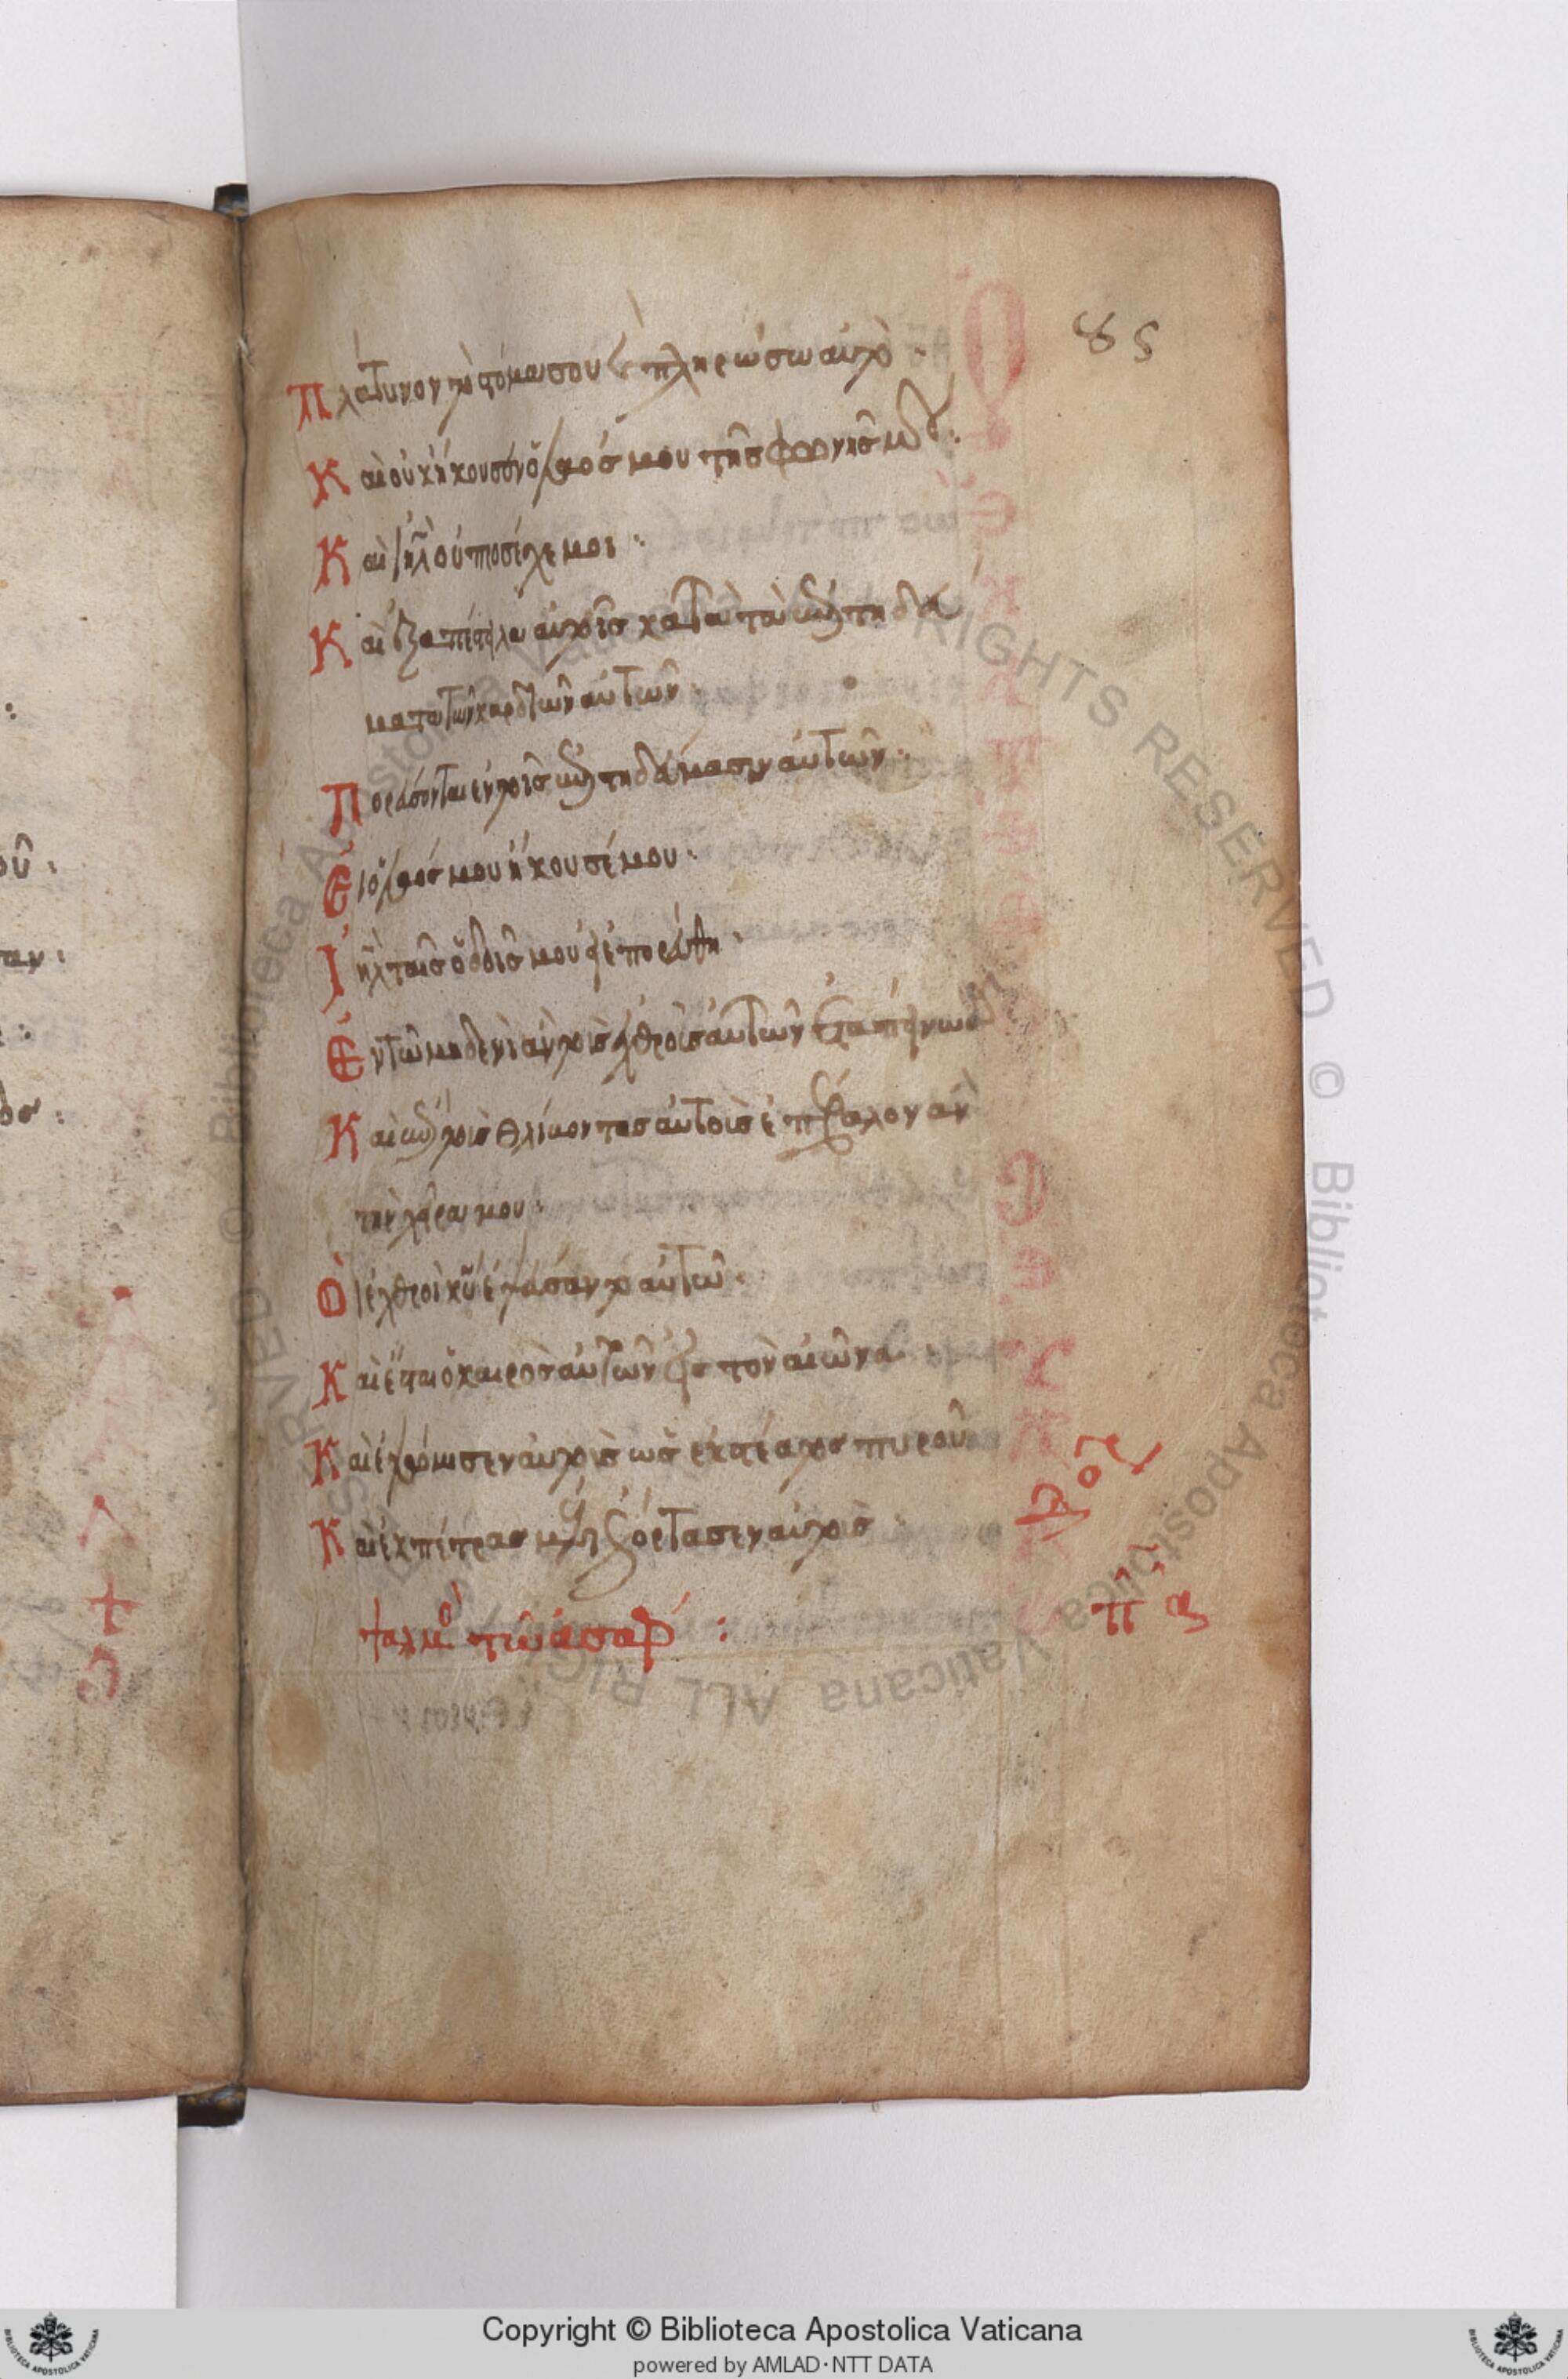 85
Πλάτυνον τὸ στόμα σου καὶ πληρώσω αὐτὸ ·
Καὶ οὐκ ἤκουσεν ὁ λαός μου τῆς φωνῆς μου :
Καὶ ιηλ οὐ προσέσχε μοι :
Καὶ ἐξαπέστειλα αὐτοῖς κατὰ τὰ ἐπιτηδεύ
ματα τῶν καρδιῶν αὐτῶν
Πορεύσονται ἐν τοῖς ἐπιτηδεύμασιν αὐτῶν :
Εἰ ὁ λαός μου ἤκουσέ μου :
Ιηλ ταῖς ὁδοῖς μου εἰ ἐπορεύθη :
Ἐν τῶ μηδενὶ ἂν τοὺς ἐχθροὺς αὐτῶν ἐταπείνωσα
Καὶ ἐπὶ τοὺς θλίβοντας αὐτοὺς ἐπέβαλον ἂν
τὴν χεῖρα μου :
Οἱ ἐχθροὶ κυ ἐψεύσαντο αὐτῶ :
Καὶ ἔσται ὁ καιρὸς αὐτῶν εἰς τὸν αἰῶνα :
Καὶ ἐψώμισεν αὐτοὺς ἐκ στέατος πυροῦ
Καὶ ἐκ πέτρας μέλι ἐχόρτασεν αὐτοὺς :
ψαλμὸ τῶ ἀσάφ :
πα
Copyright © Biblioteca Apostolica Vaticana
powered by AMLAD·NTT DATA